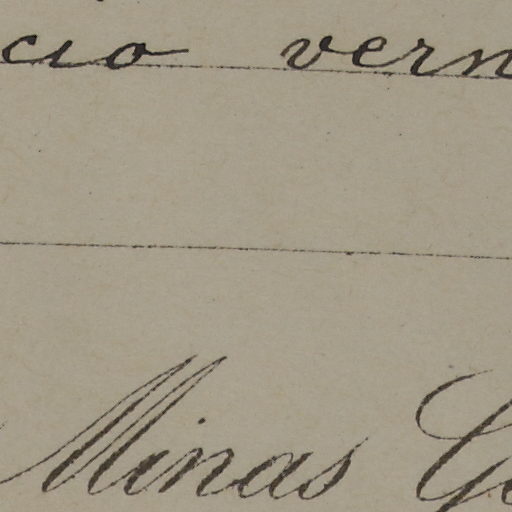 cio vern
Minas Ge